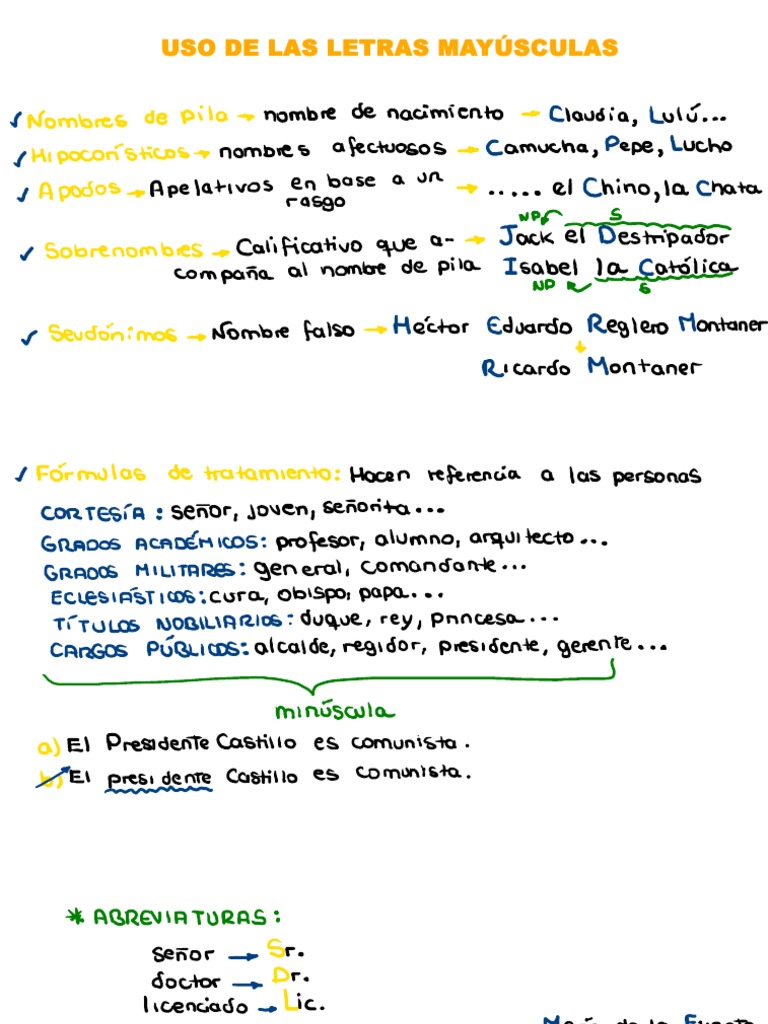 USO DE LAS LETRAS MAYÚSCULAS
✓ Nombres de pila → nombre de nacimiento → Claudia, Lulú...
✓ Hipocorísticos → nombres afectuosos → Camucha, Pepe, Lucho
✓ Apodos → Apelativos en base a un rasgo → ..... el Chino, la Chata
NP S
✓ Sobrenombres → Calificativo que a- → Jack el Destripador
compaña al nombre de pila Isabel la Católica
NP S
✓ Seudónimos → Nombre falso → Héctor Eduardo Reglero Montaner
Ricardo Montaner
✓ Fórmulas de tratamiento: Hacen referencia a las personas
CORTESÍA: señor, joven, señorita...
GRADOS ACADÉMICOS: profesor, alumno, arquitecto...
GRADOS MILITARES: general, comandante...
ECLESIÁSTICOS: cura, obispo, papa...
TÍTULOS NOBILIARIOS: duque, rey, princesa...
CARGOS PÚBLICOS: alcalde, regidor, presidente, gerente...
minúscula
a) El Presidente Castillo es comunista.
b) El presidente Castillo es comunista.
* ABREVIATURAS:
señor → Sr.
doctor → Dr.
licenciado → Lic.